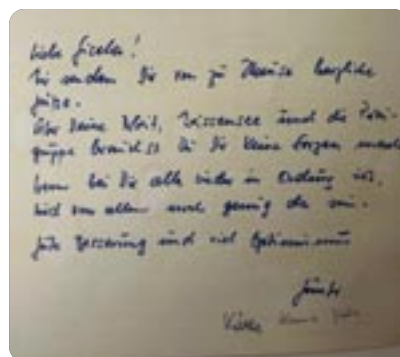 Liebe Gisela!
Wir senden Dir von zu Hause herzliche
Grüsse.
Über Deine Arbeit, Weissensee und die
gruppe brauchst Du Dir keine Sorgen
Wenn bei Dir alles wieder in Ordnung ist,
wird von allem noch genug da sein.
Gute Besserung und viel Optimismus
Günter